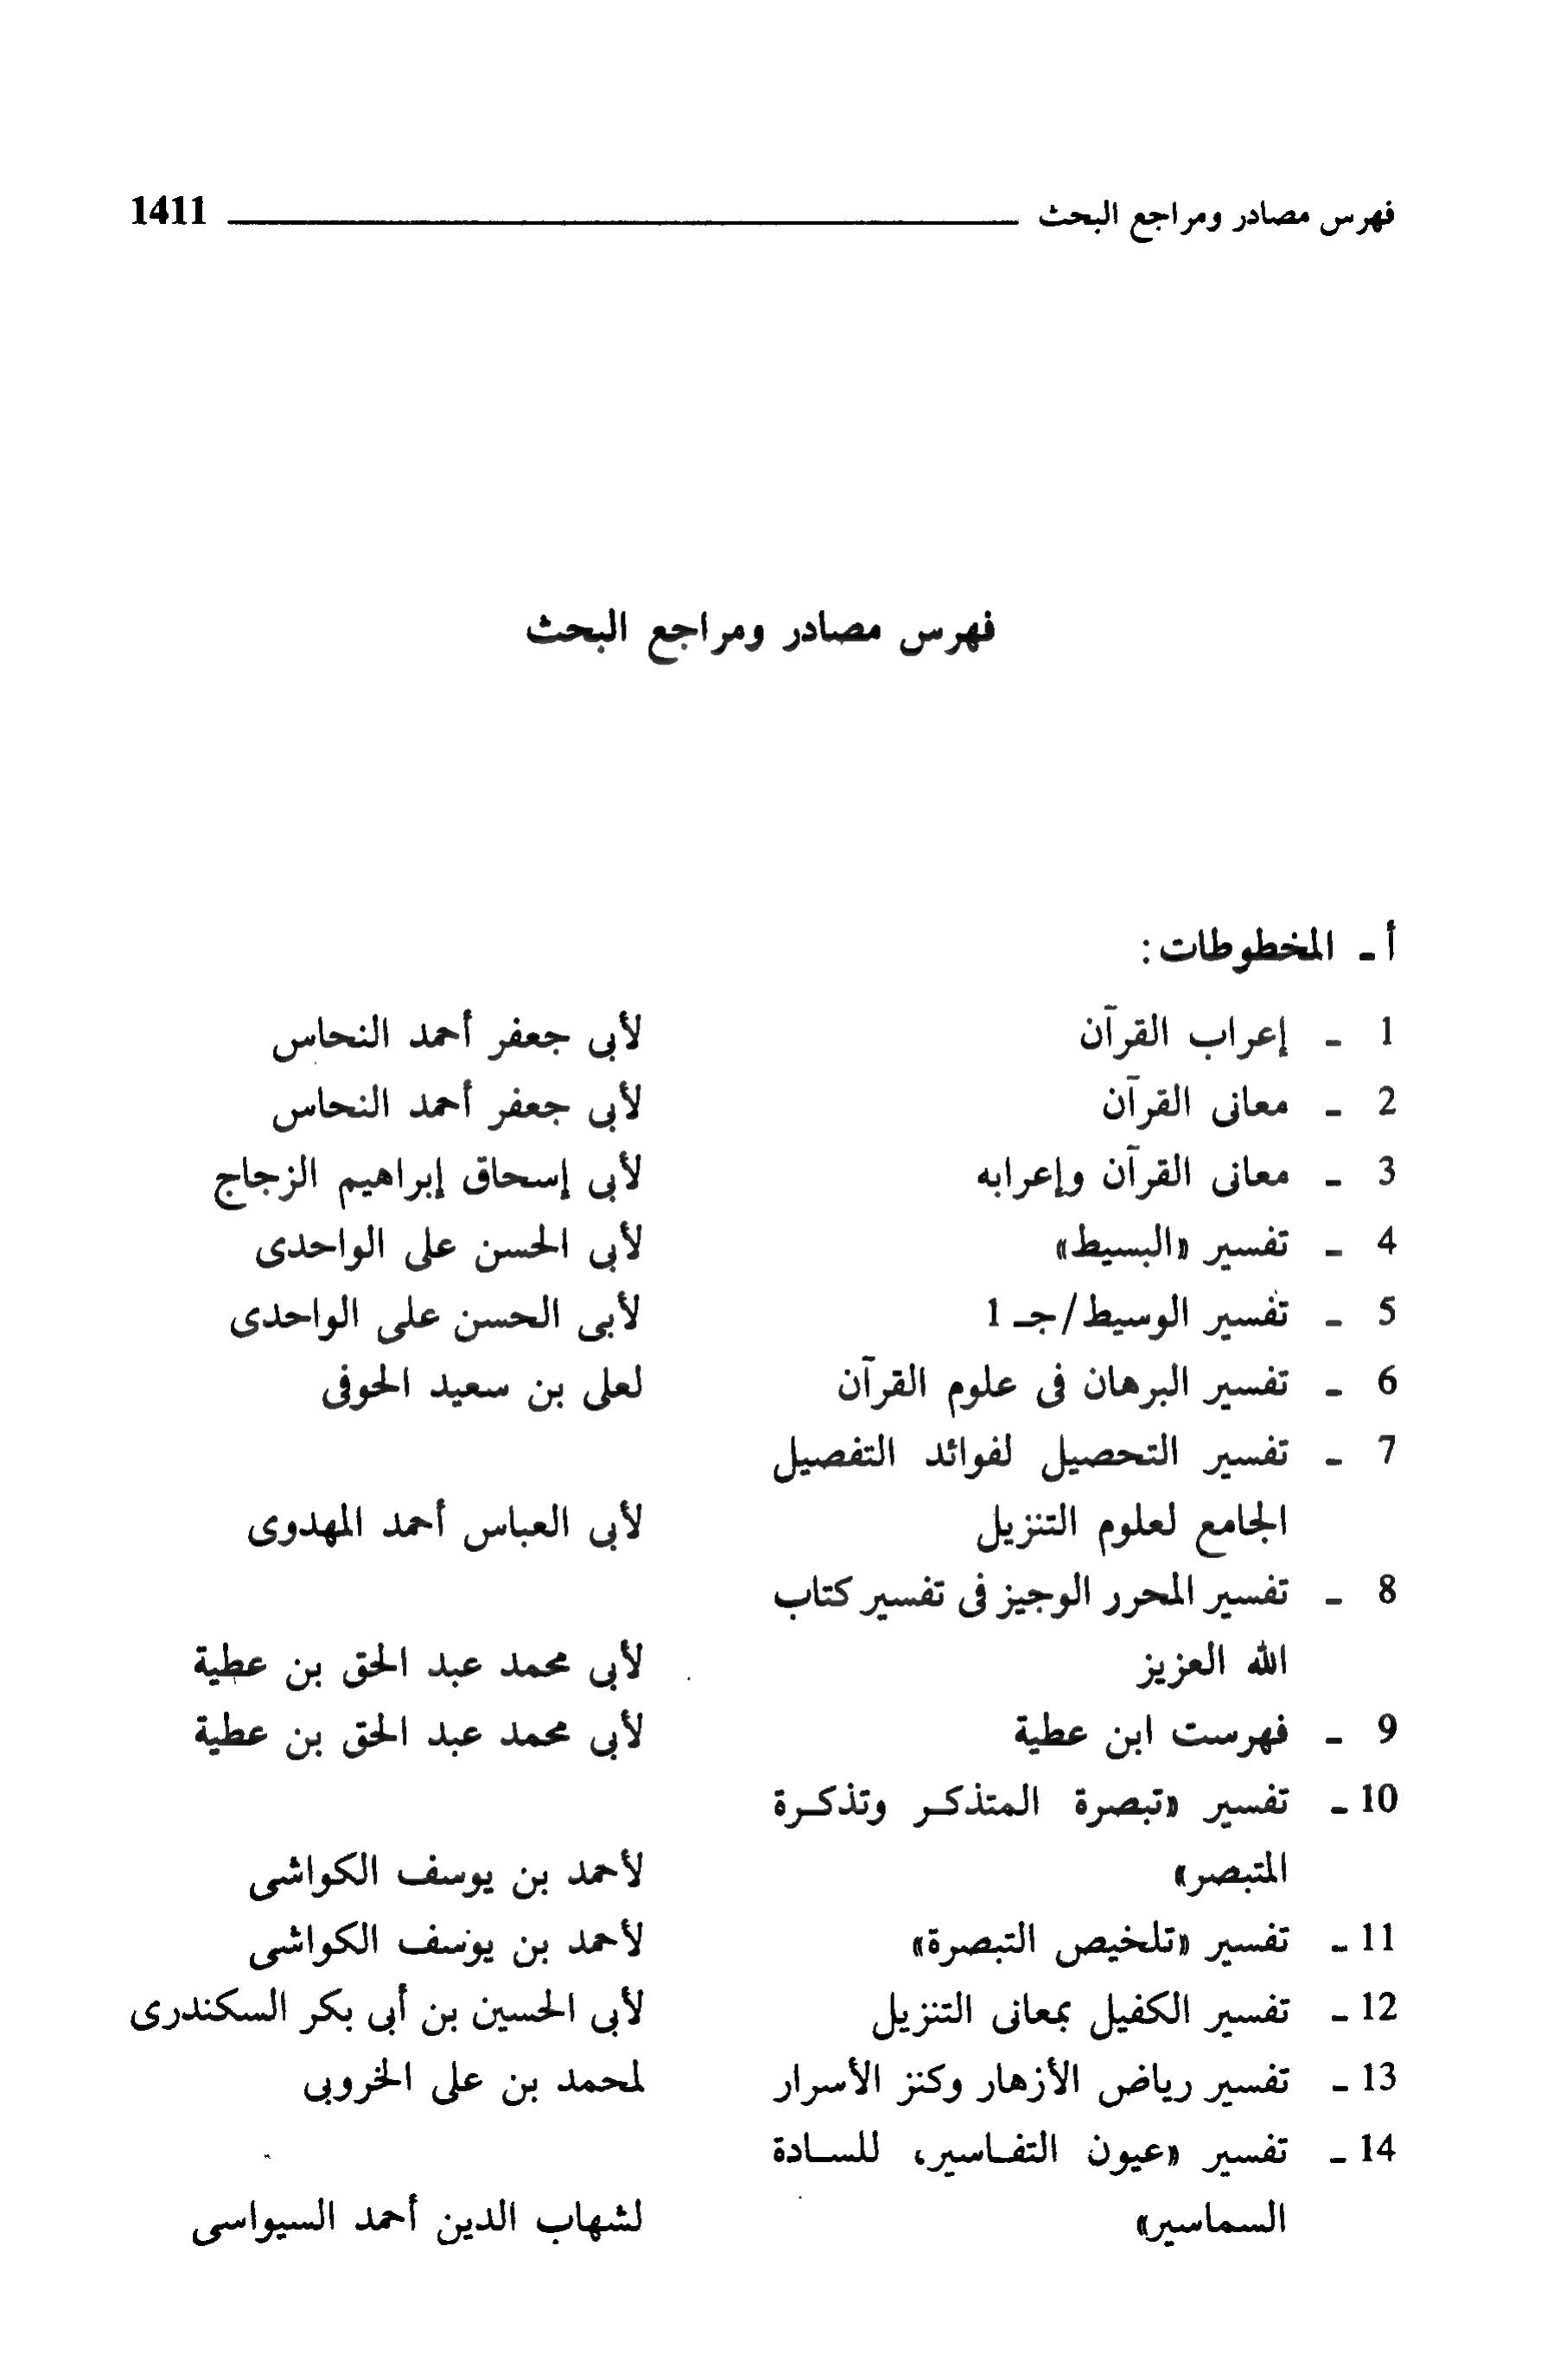 فهرس مصادر ومراجع البحث 1411
فهرس مصادر ومراجع البحث
أ - المخطوطات :
1 - إعراب القرآن لأبى جعفر أحمد النحاس
2 - معانى القرآن لأبى جعفر أحمد النحاس
3 - معانى القرآن وإعرابه لأبى إسحاق إبراهيم الزجاج
4 - تفسير «البسيط» لأبى الحسن على الواحدى
5 - تفسير الوسيط/جـ 1 لأبى الحسن على الواحدى
6 - تفسير البرهان فى علوم القرآن لعلى بن سعيد الحوفى
7 - تفسير التحصيل لفوائد التفصيل
الجامع لعلوم التنزيل لأبى العباس أحمد المهدوى
8 - تفسير المحرر الوجيز فى تفسير كتاب
الله العزيز لأبى محمد عبد الحق بن عطية
9 - فهرست ابن عطية لأبى محمد عبد الحق بن عطية
10 - تفسير «تبصرة المتذكـر وتذكـرة
المتبصر» لأحمد بن يوسف الكواشى
11 - تفسير «تلخيص التبصرة» لأحمد بن يوسف الكواشى
12 - تفسير الكفيل بمعانى التنزيل لأبى الحسين بن أبى بكر السكندرى
13 - تفسير رياض الأزهار وكنز الأسرار لمحمد بن على الخروبى
14 - تفسير «عيون التفـاسير، للسـادة
السماسير» لشهاب الدين أحمد السيواسى